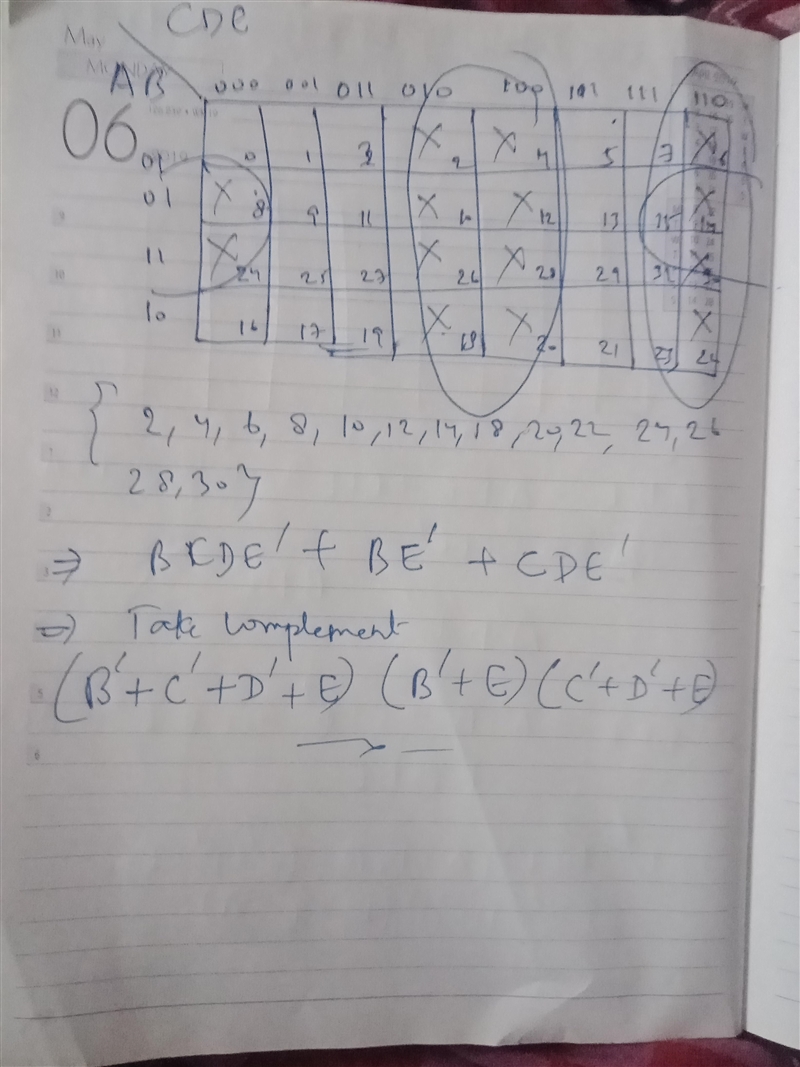 May
CDE
MONDAY
AB 000 001 011 010 100 101 111 110
06
0 1 3 X 2 X 4 5 7 X 6
01 X 8 9 11 X 10 X 12 13 15 X 14
11 X 24 25 27 X 26 X 28 29 31 X
10 16 17 19 X 18 X 20 21 23 X
9
10
11
12
{ 2, 4, 6, 8, 10, 12, 14, 18, 20, 22, 24, 26
1
28, 30}
2
3 ⇒ BCDE' + BE' + CDE'
⇒ Take complement
5 (B' + C' + D' + E) (B' + E) (C' + D' + E)
6